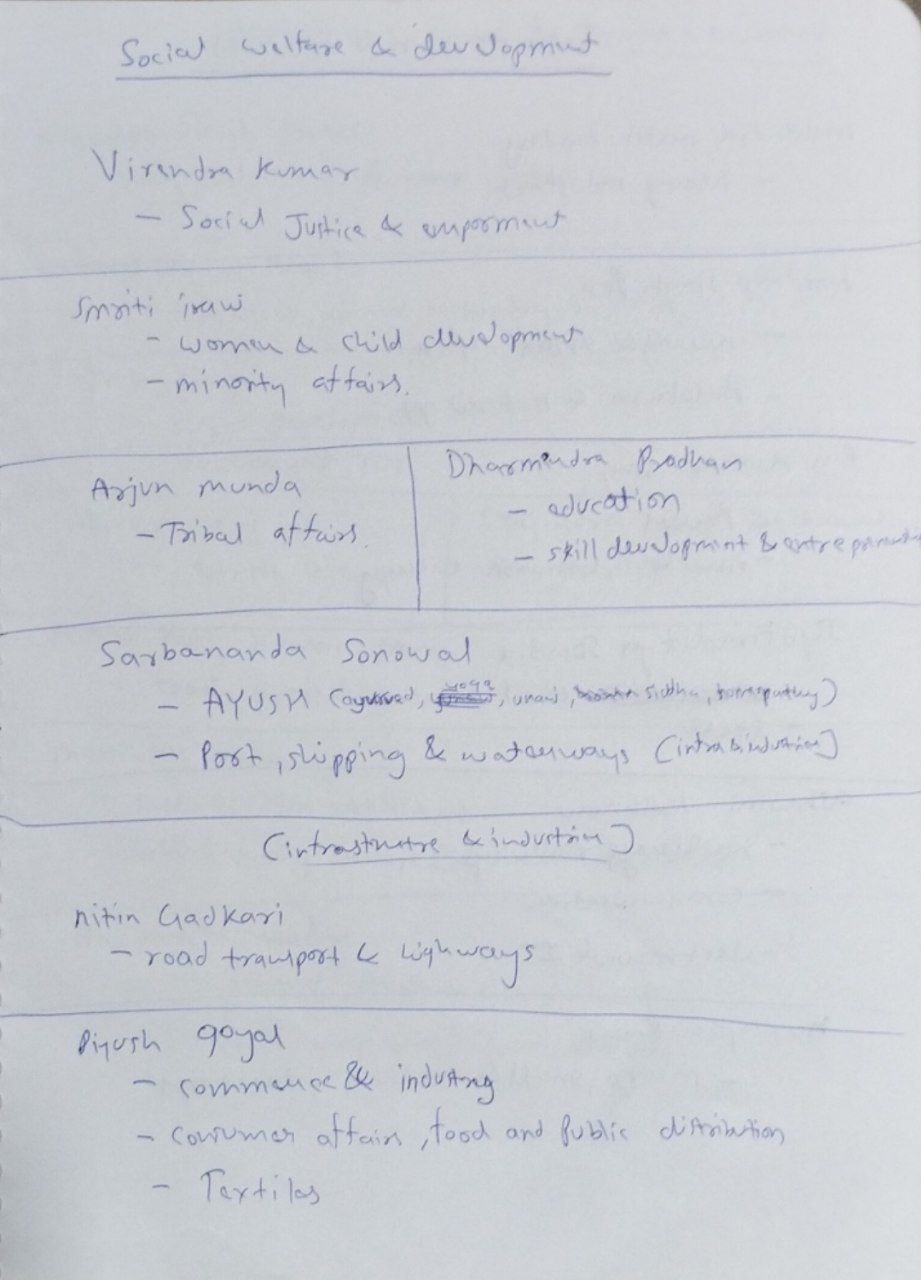 Social welfare & development
Virendra Kumar
- Social Justice & emporment
Smriti irani
- women & child development
- minority affairs.
Arjun munda
- Tribal affairs.
Dharmendra Pradhan
- education
- skill development & entre
Sarbananda Sonowal
- AYUSH (ayurved, yoga, unani, siddha, homeopathy)
- Port, shipping & waterways (infra & industries)
(infrastructre & industries)
nitin Gadkari
- road transport & highways
Piyush goyal
- commerce & industry
- consumer affairs, food and Public distribution
- Textiles